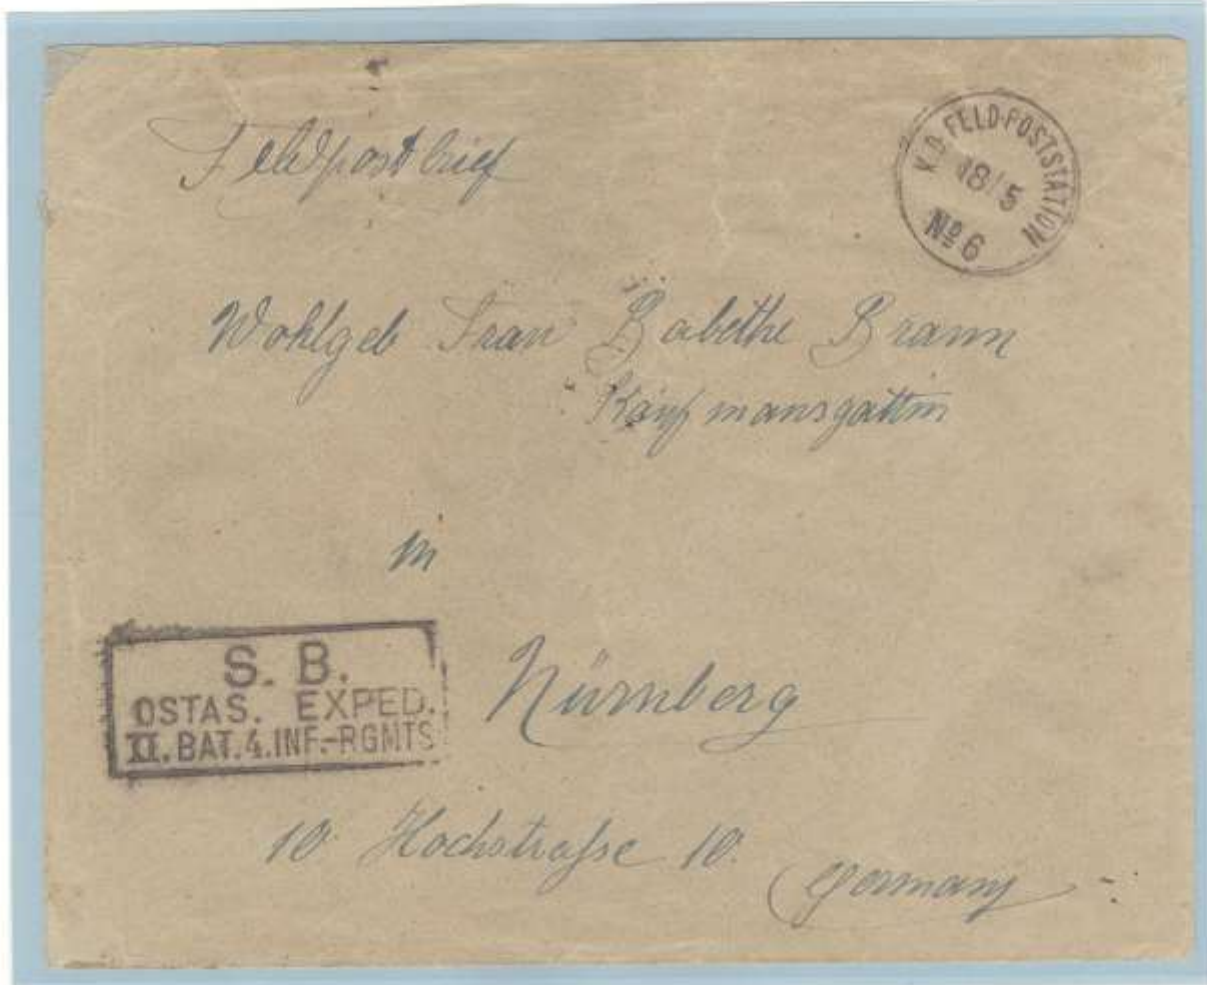 Feldpostbrief
K.D. FELD-POSTSTATION
18/5
No 6
Wohlgeb Frau Babethe Braun
Kaufmansgattin
in
Nürnberg
S. B.
OSTAS. EXPED.
II. BAT. 4. INF.-RGMTS
10 Hochstraſse 10.
Germany